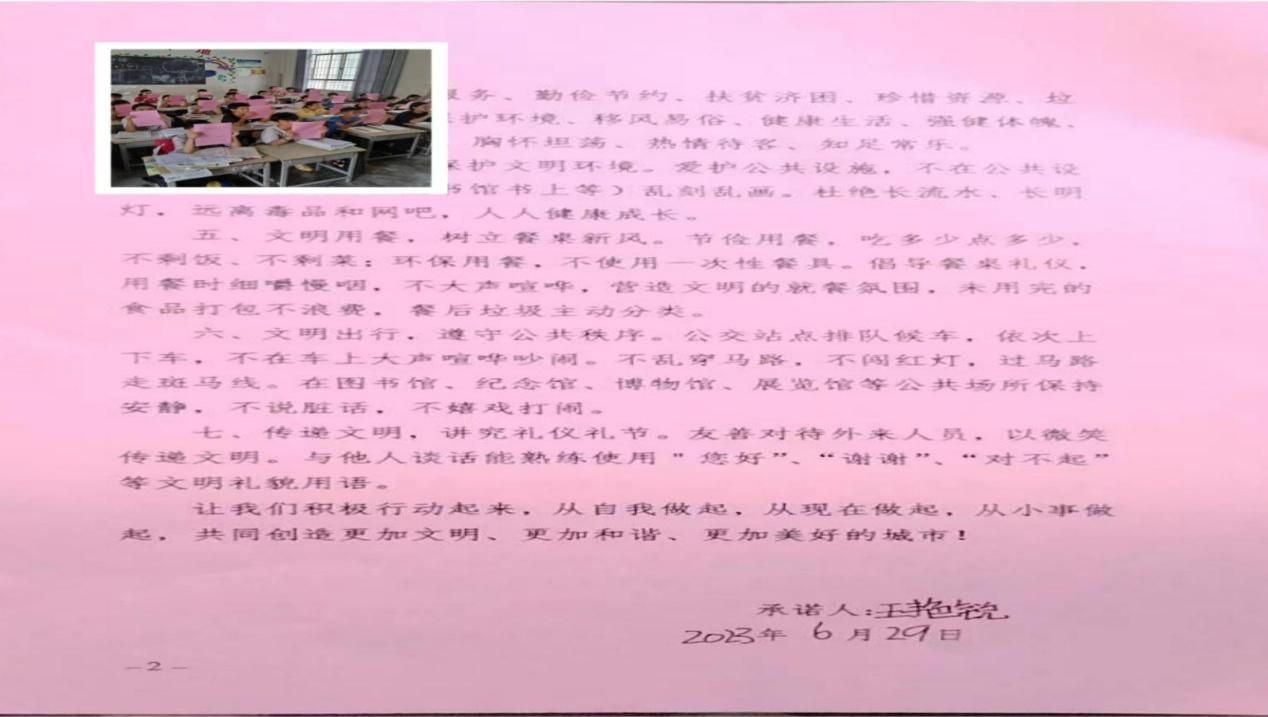 服务、勤俭节约、扶贫济困、珍惜资源、垃
护环境、移风易俗、健康生活、强健体魄、
胸怀坦荡、热情待客、知足常乐。
保护文明环境。爱护公共设施，不在公共设
书馆书上等）乱刻乱画。杜绝长流水、长明
灯，远离毒品和网吧，人人健康成长。
五、文明用餐，树立餐桌新风。节俭用餐，吃多少点多少，
不剩饭、不剩菜；环保用餐，不使用一次性餐具。倡导餐桌礼仪，
用餐时细嚼慢咽，不大声喧哗，营造文明的就餐氛围，未用完的
食品打包不浪费，餐后垃圾主动分类。
六、文明出行，遵守公共秩序。公交站点排队候车，依次上
下车，不在车上大声喧哗吵闹。不乱穿马路，不闯红灯，过马路
走斑马线。在图书馆、纪念馆、博物馆、展览馆等公共场所保持
安静，不说脏话，不嬉戏打闹。
七、传递文明，讲究礼仪礼节。友善对待外来人员，以微笑
传递文明。与他人谈话能熟练使用"您好”、“谢谢”、“对不起”
等文明礼貌用语。
让我们积极行动起来，从自我做起，从现在做起，从小事做
起，共同创造更加文明、更加和谐、更加美好的城市！
承诺人：王艳
2023年 6月29日
—2—